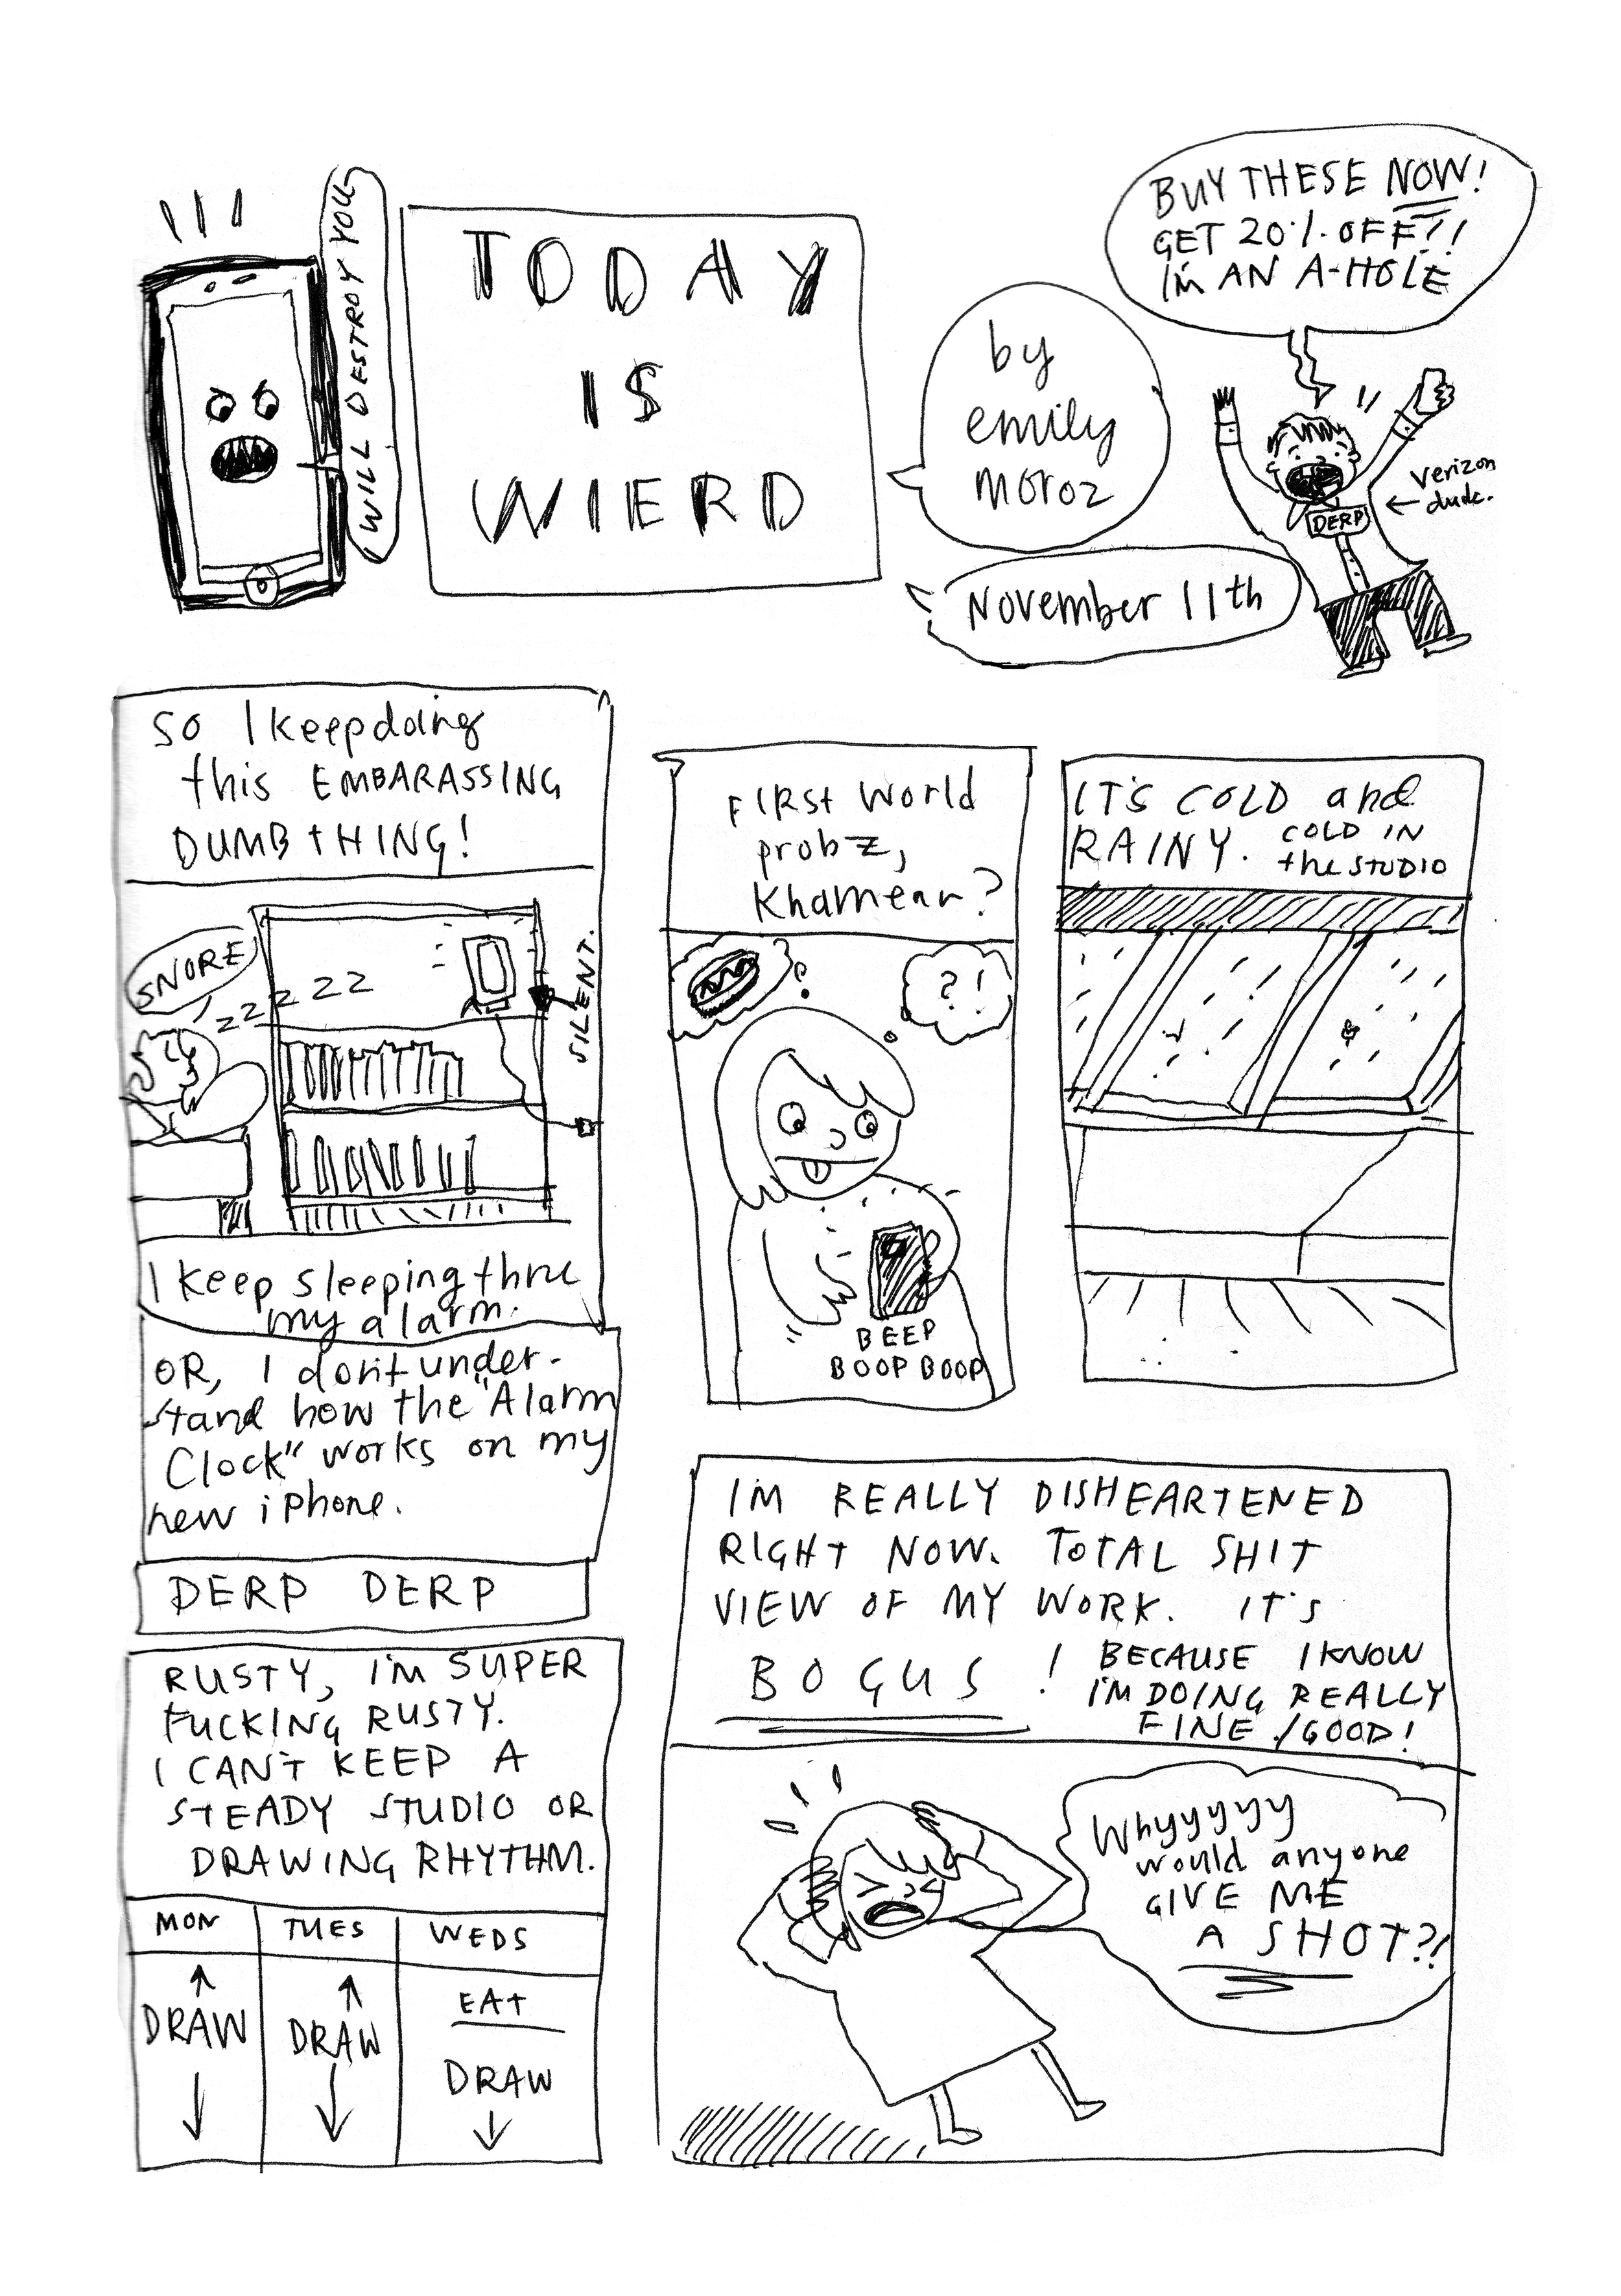 I WILL DESTROY YOU
TODAY
IS
WIERD
by
emily
moroz
November 11th
BUY THESE NOW!
GET 20% OFF?!!
I'M AN A-HOLE
DERP
verizon
dude.
SO I keep doing
this EMBARASSING
DUMB tHING!
SNORE
ZZZZZZ
SILENT.
I keep sleeping thru
my alarm.
OR, I don't under-
stand how the "Alarm
Clock" works on my
new iphone.
DERP DERP
FIRSt World
probz,
Khamean?
?!
BEEP
BOOP BOOP
IT'S COLD and
RAINY. COLD IN
the STUDIO
RUSTY, I'M SUPER
FUCKING RUSTY.
I CAN'T KEEP A
STEADY STUDIO OR
DRAWING RHYTHM.
MON TUES WEDS
DRAW DRAW EAT
DRAW
I'M REALLY DISHEARTENED
RIGHT NOW. TOTAL SHIT
VIEW OF MY WORK. IT'S
BOGUS! BECAUSE I KNOW
I'M DOING REALLY
FINE./GOOD!
Whyyyyy
would anyone
GIVE ME
A SHOT?!